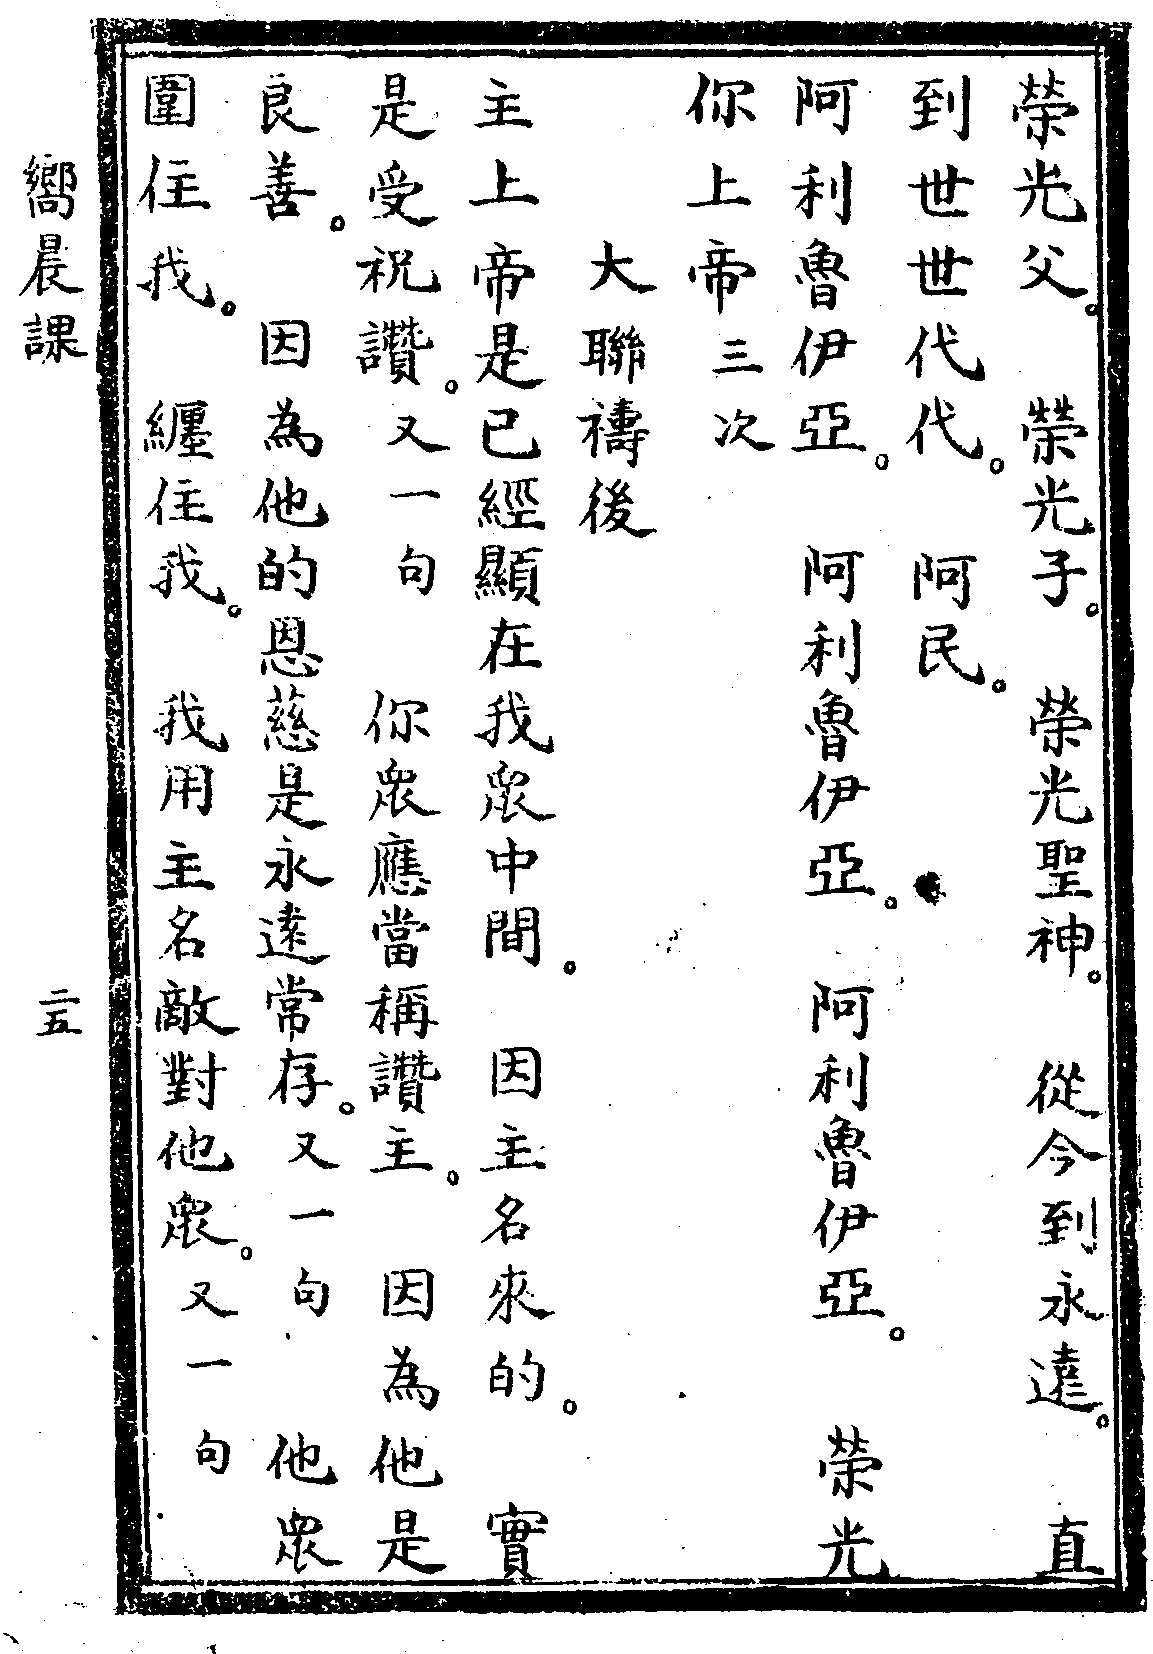 榮光父。　榮光子。　榮光聖神。　從今到永遠。　直
到世世代代。　阿民。
阿利魯伊亞。　阿利魯伊亞。　阿利魯伊亞。　榮光
你上帝三次
大聯禱後
主上帝是已經顯在我眾中間。　因主名來的。　實
是受祝讚。又一句　你眾應當稱讚主。　因為他是
良善。　因為他的恩慈是永遠常存。又一句　他眾
圍住我。　纏住我。　我用主名敵對他眾。又一句
嚮晨課
二五